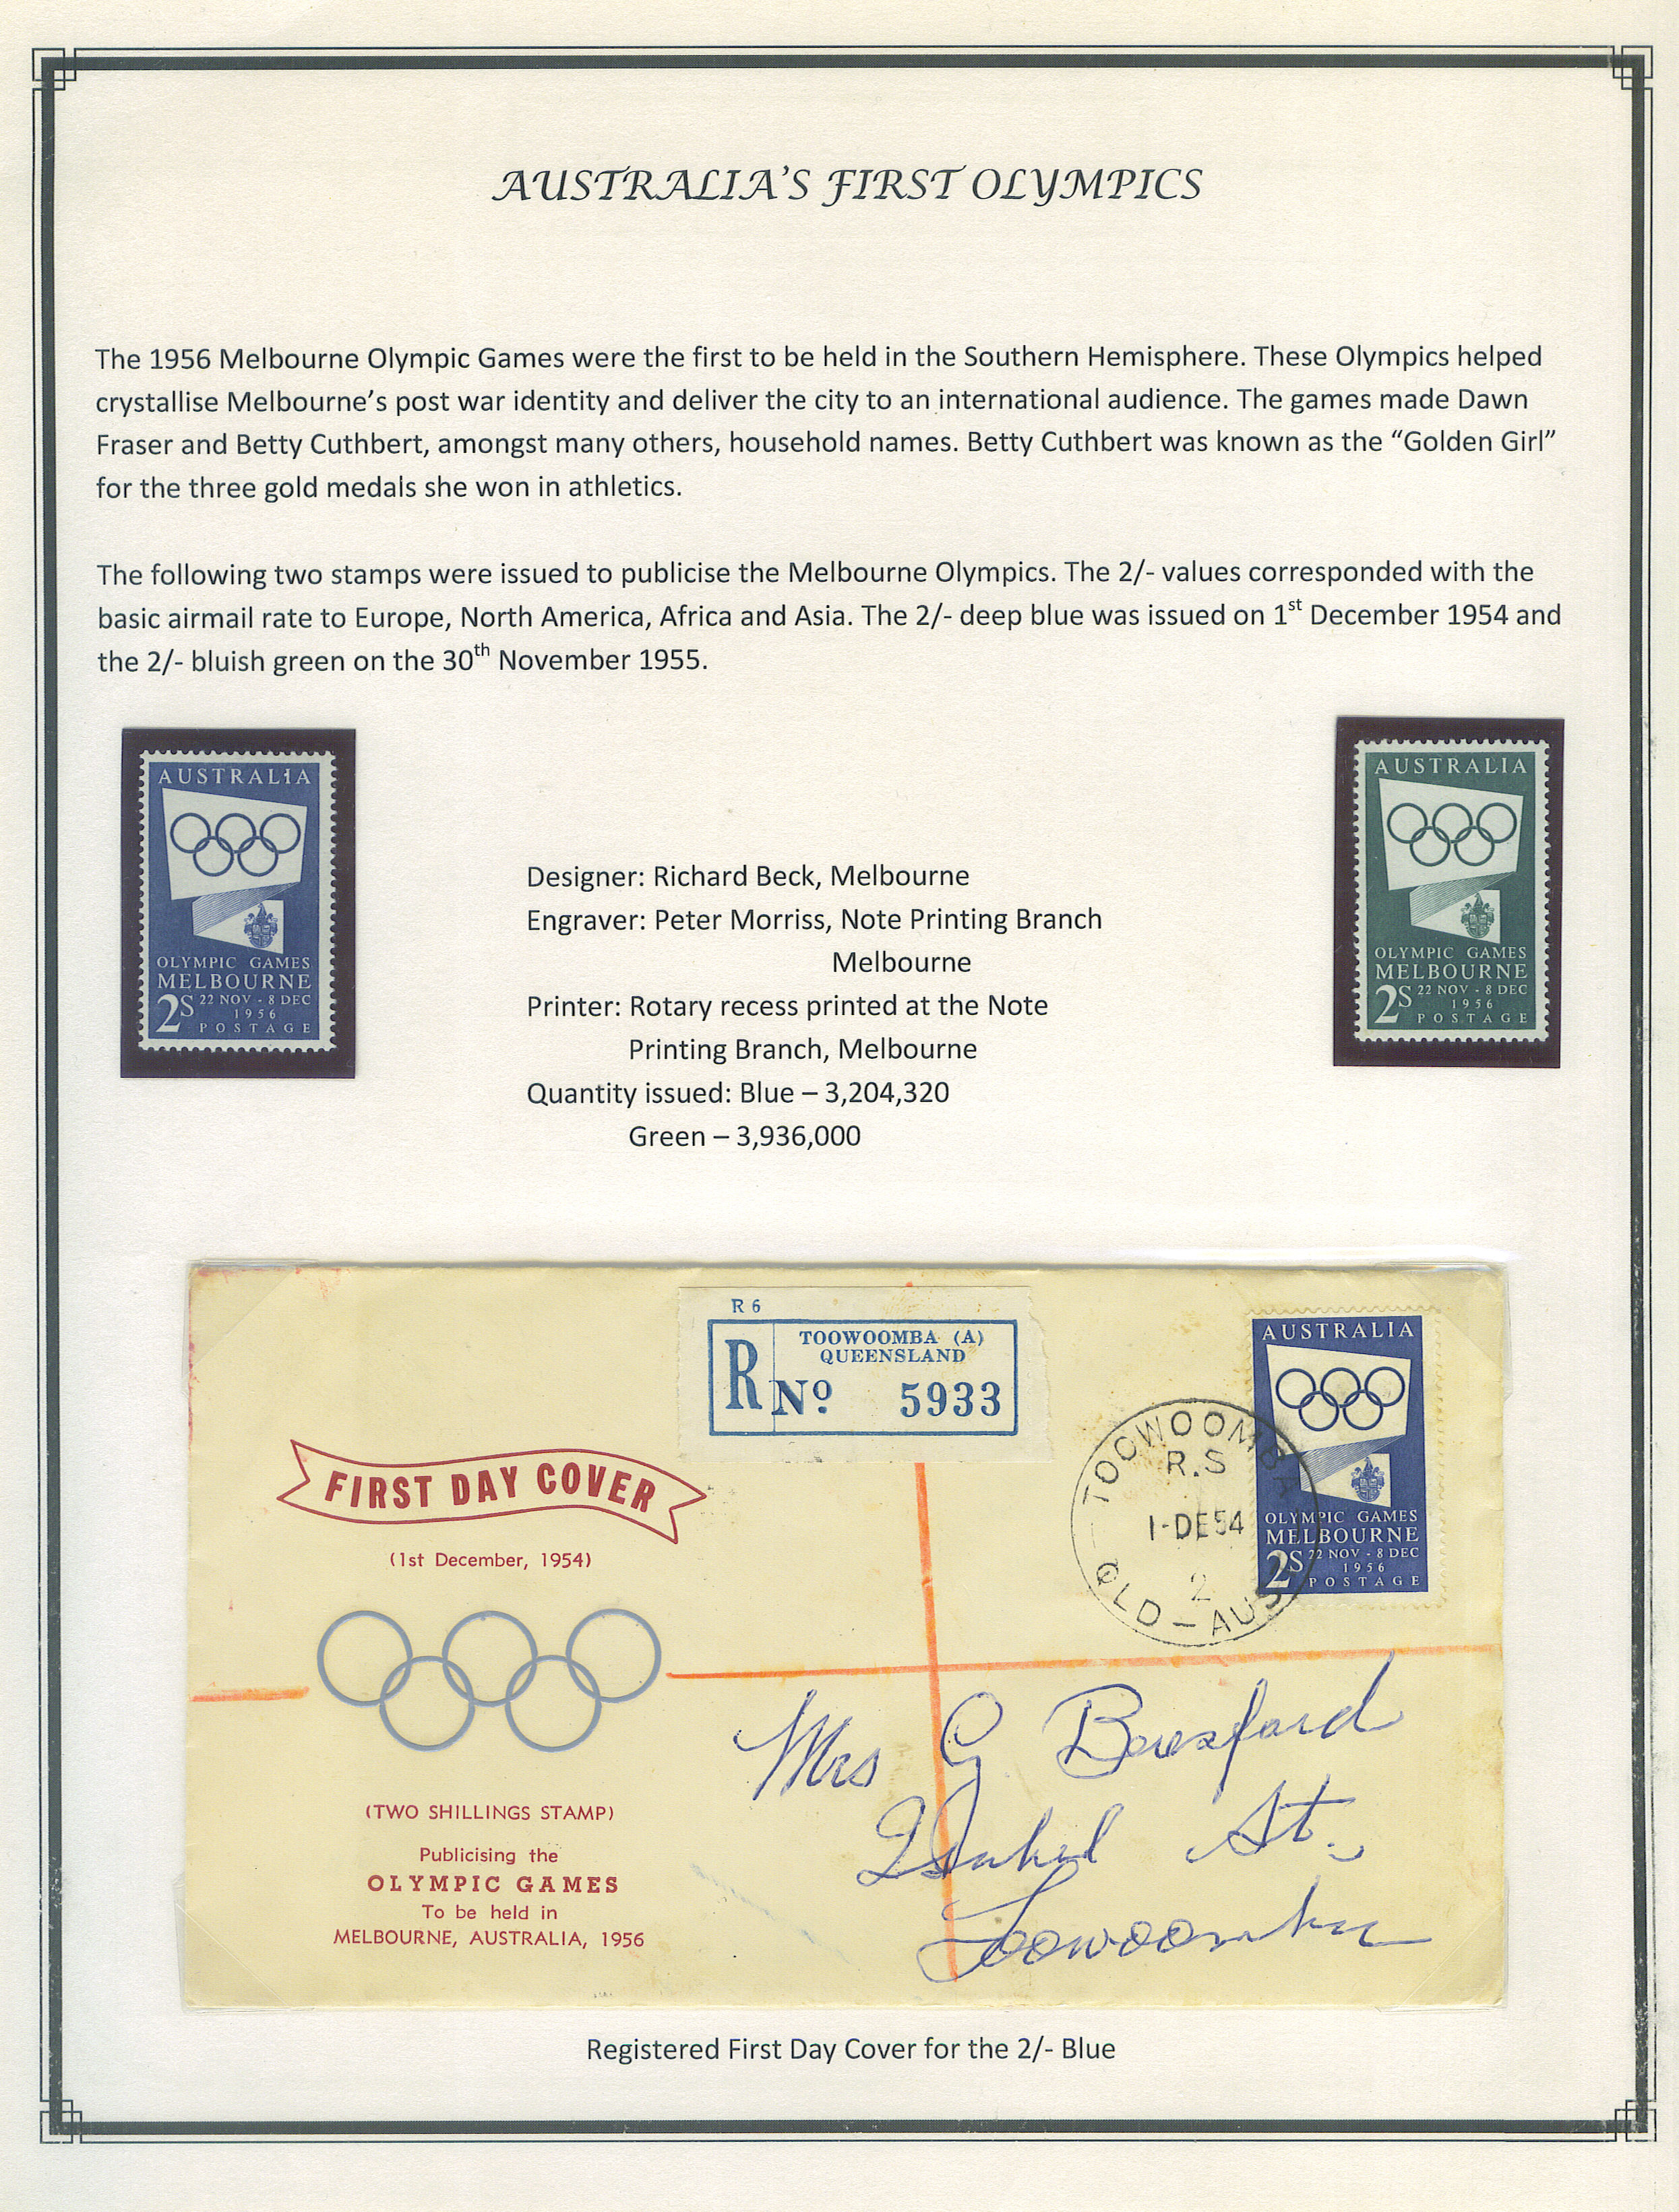 AUSTRALIA'S FIRST OLYMPICS
The 1956 Melbourne Olympic Games were the first to be held in the Southern Hemisphere. These Olympics helped
crystallise Melbourne's post war identity and deliver the city to an international audience. The games made Dawn
Fraser and Betty Cuthbert, amongst many others, household names. Betty Cuthbert was known as the "Golden Girl"
for the three gold medals she won in athletics.
The following two stamps were issued to publicise the Melbourne Olympics. The 2/- values corresponded with the
basic airmail rate to Europe, North America, Africa and Asia. The 2/- deep blue was issued on 1st December 1954 and
the 2/- bluish green on the 30th November 1955.
AUSTRALIA
OLYMPIC GAMES
MELBOURNE
2S 22 NOV - 8 DEC
1956
POSTAGE
AUSTRALIA
OLYMPIC GAMES
MELBOURNE
2S 22 NOV - 8 DEC
1956
POSTAGE
Designer: Richard Beck, Melbourne
Engraver: Peter Morriss, Note Printing Branch
Melbourne
Printer: Rotary recess printed at the Note
Printing Branch, Melbourne
Quantity issued: Blue – 3,204,320
Green – 3,936,000
R 6
TOOWOOMBA (A)
QUEENSLAND
R No. 5933
AUSTRALIA
OLYMPIC GAMES
MELBOURNE
2S 22 NOV - 8 DEC
1956
POSTAGE
TOOWOOMBA
R.S
1-DE54
2
QLD - AUST
FIRST DAY COVER
(1st December, 1954)
(TWO SHILLINGS STAMP)
Publicising the
OLYMPIC GAMES
To be held in
MELBOURNE, AUSTRALIA, 1956
Mrs G Beresford
Isabel St.,
Toowoomba
Registered First Day Cover for the 2/- Blue